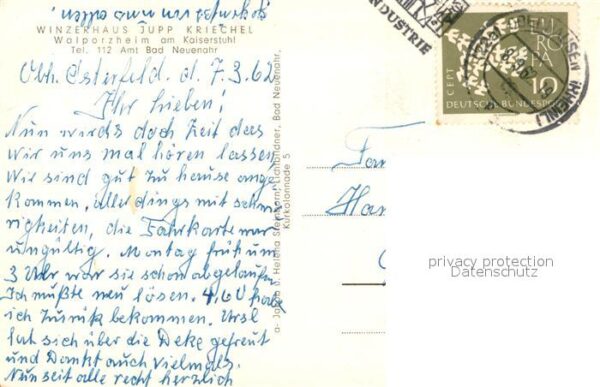 WINZERHAUS JUPP KRIECHEL
Walporzheim am Kaiserstuhl
Tel. 112 Amt Bad Neuenahr
Obh. Osterfeld. d. 7.3.62
Ihr Lieben!
Nun wirds doch Zeit das
Wir uns mal hören lassen
Wir sind gut zu hause ange
kommen, allerdings mit schwie
rigkeiten, die Fahrkarte war
ungültig. Montag früh um
3 Uhr war sie schon abgelaufen
Ich mußte neu lösen. 4,60 habe
ich zurük bekommen. Ursl
hat sich über die Deke gefreut
und Dankt auch vielmals.
Nun seit alle recht herzlich
gegrüßt von
a- Jakob u. Helena Steinborn, Lichtbildner, Bad Neuenahr,
Kurkolonnade 5
INDUSTRIE
OBERHAUSEN (RHEINL)
EUROPA
CEPT
10
DEUTSCHE BUNDESPOST
Fam
Han
privacy protection
Datenschutz